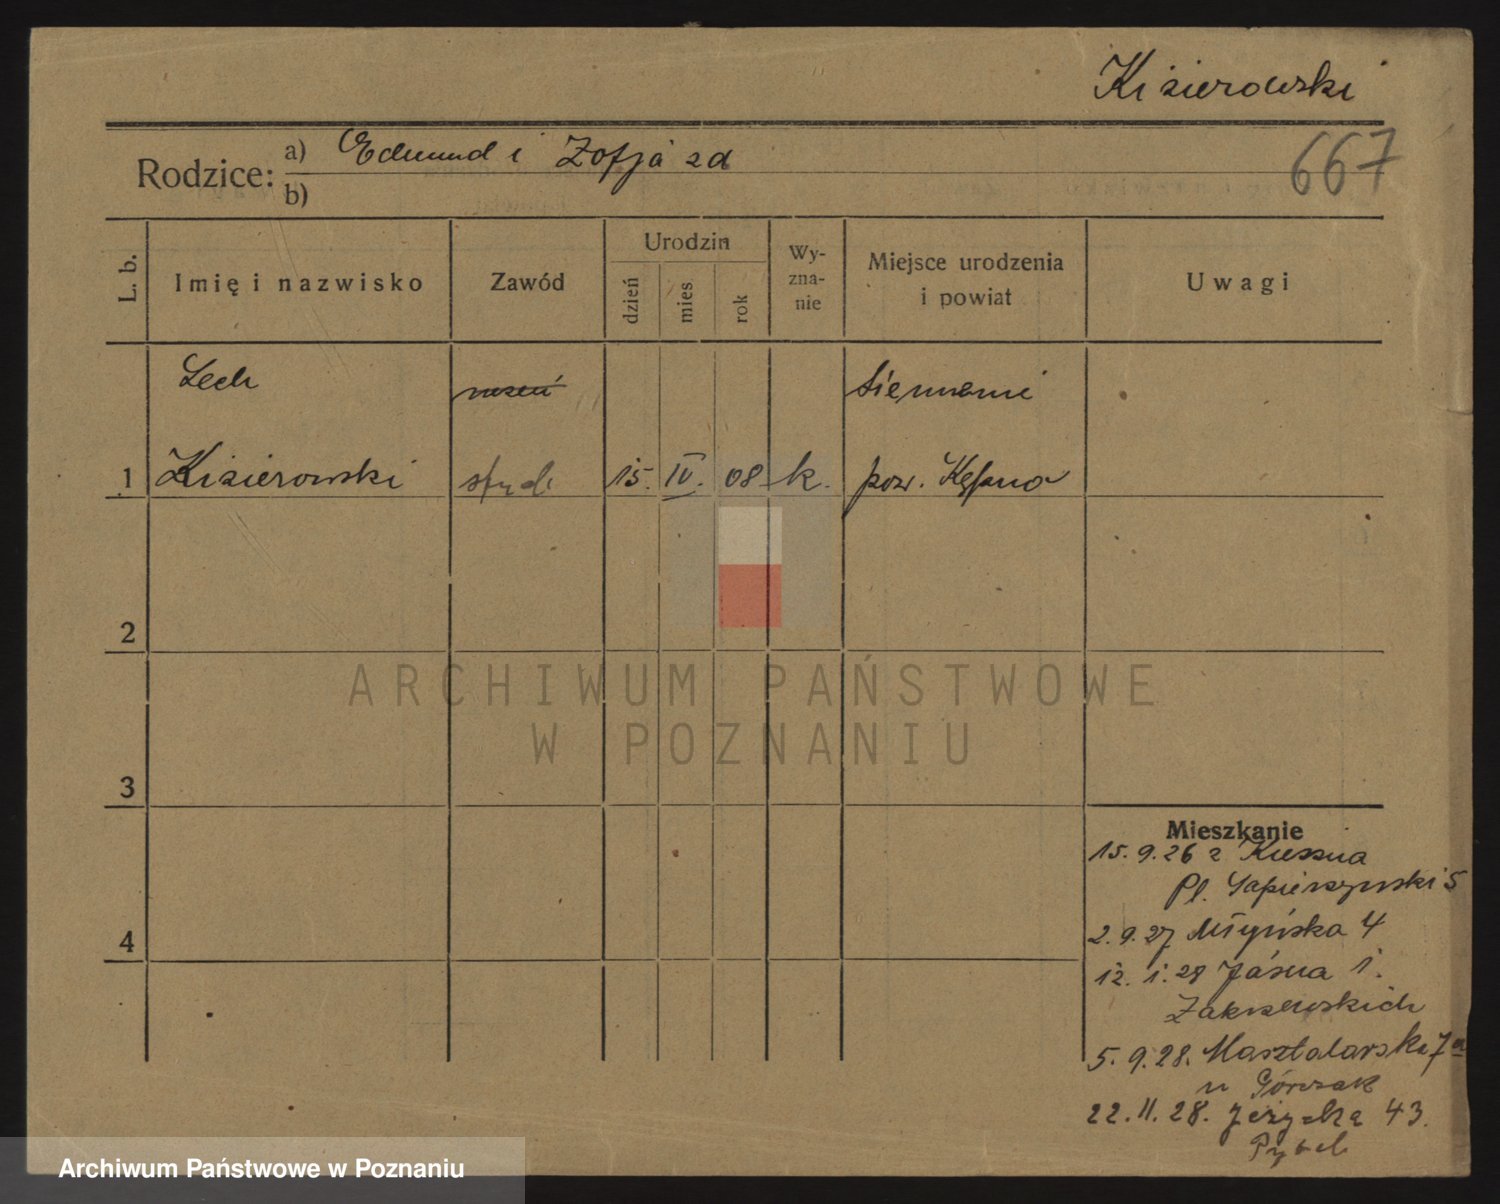 Kizierowski
Rodzice: a) Edmund i Zofja zd
b)
667
L. b. Imię i nazwisko Zawód Urodzin dzień mies rok Wy-zna-nie Miejsce urodzenia i powiat Uwagi
Lech uczeń
1 Kizierowski stud. 15. IV. 08 k. pow. Kępno
2
3
4
Mieszkanie
15.9.26 z
Pl. Sapieżyński 5
2.9.27 Młyńska 4
12.1.28 Jasna 1.
Zakrzewskich
5.9.28. Masztalarska 7a
u Górczak
22.11.28. Jeżycka 43.
ARCHIWUM PAŃSTWOWE
W POZNANIU
Archiwum Państwowe w Poznaniu